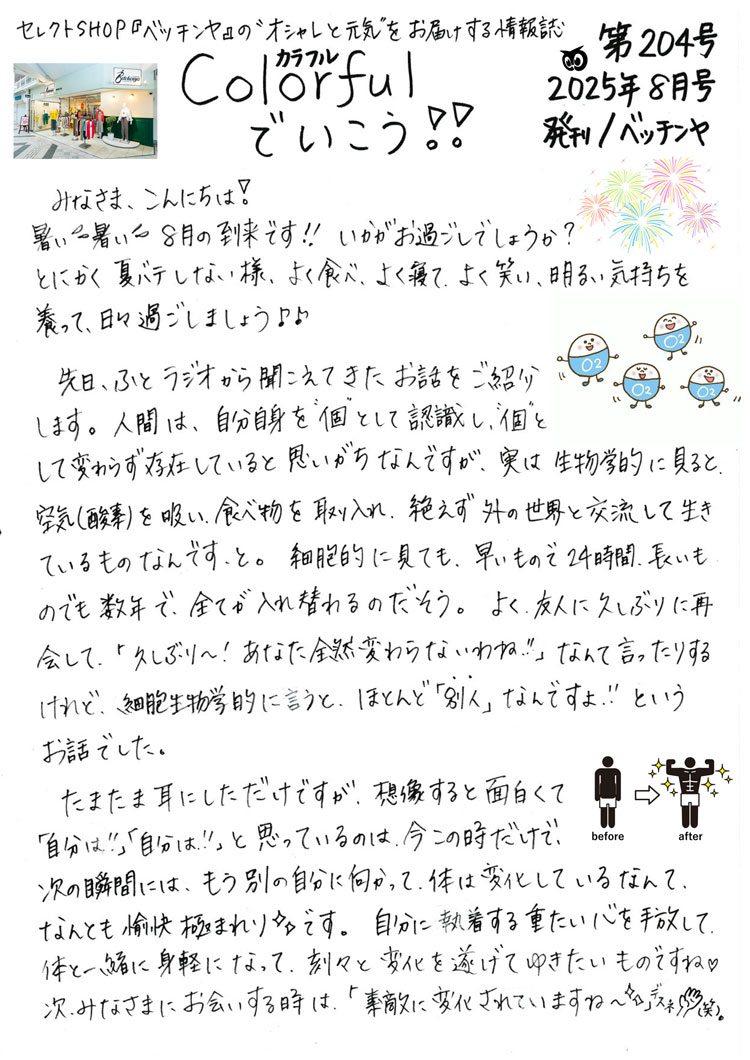 セレクトSHOP『ベッチンヤ』の"オシャレと元気"をお届けする情報誌
カラフル
Colorful
でいこう!!
第204号
2025年8月号
発刊/ベッチンヤ
みなさま、こんにちは!
暑い〜暑い〜 8月の到来です!! いかがお過ごしでしょうか?
とにかく夏バテしない様、よく食べ、よく寝て、よく笑い、明るい気持ちを
養って、日々過ごしましょう♪♪
先日、ふとラジオから聞こえてきたお話をご紹介
します。人間は、自分自身を"個"として認識し、"個"と
して変わらず存在していると思いがちなんですが、実は生物学的に見ると、
空気(酸素)を吸い、食べ物を取り入れ、絶えず外の世界と交流して生き
ているものなんです、と。細胞的に見ても、早いもので24時間、長いも
のでも数年で、全てが入れ替わるのだそう。よく、友人に久しぶりに再
会して、「久しぶり〜!あなた全然変わらないわね!!」なんて言ったりする
けれど、細胞生物学的に言うと、ほとんど「別人」なんですよ!!という
お話でした。
O2
O2
O2
O2
たまたま耳にしただけですが、想像すると面白くて
「自分は!!」「自分は!!」と思っているのは、今この時だけで、
次の瞬間には、もう別の自分に向かって、体は変化しているなんて、
なんとも愉快極まれり✨です。自分に執着する重たい心を手放して、
体と一緒に身軽になって、刻々と変化を遂げてゆきたいものですね♡
次、みなさまにお会いする時は、「素敵に変化されていますね〜✨」デスネ(笑)。
before
after